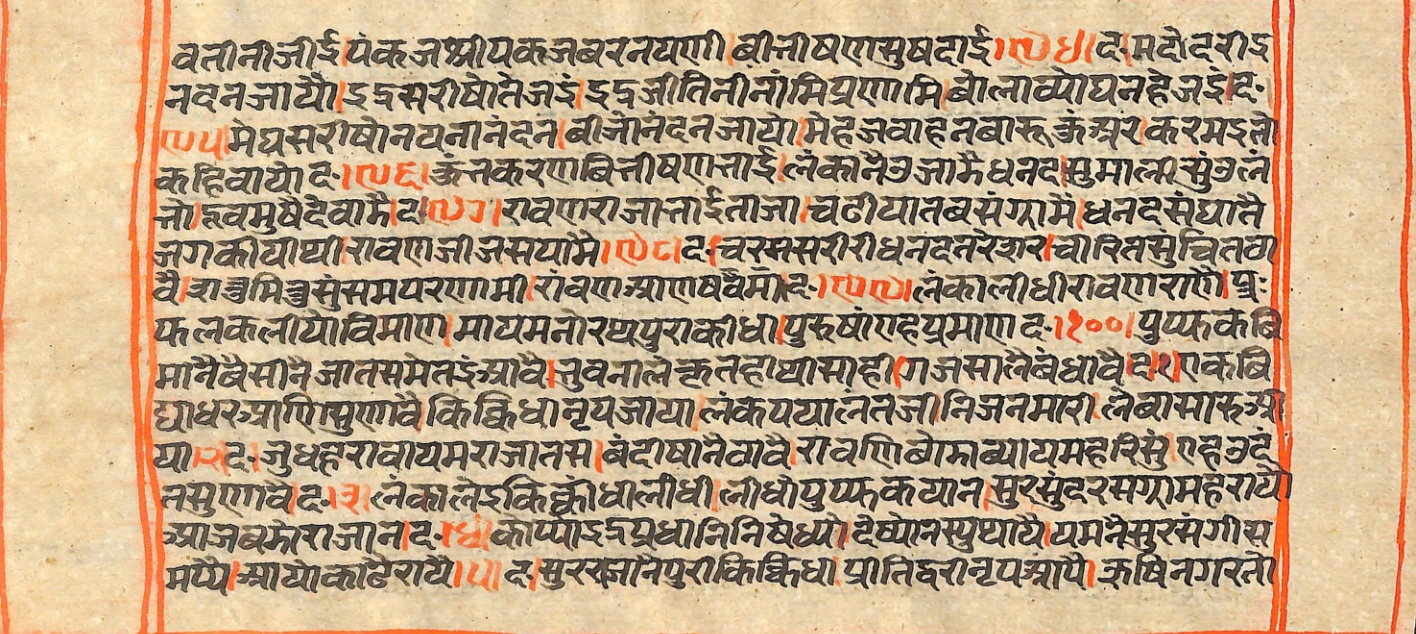 वतीनीजीई।पंकजश्रीपकजबरनपणी।बीभीषणसुषदाई।९४।द॰मदोदरीइ
नदनजायौ।इद्रसरीषोतेजइं।इद्रजीतिनीनांमिप्रणामि।बोलाव्योघनहेजइ।द॰
९५।मेघसरीषोनयनानंदन।बीजोनंदनजायो।मेहजवाहनबारूऊअर।करमइलो
कहिवायो।द॰।९६।ऊंनकरणबिभीषणभाई।लंकानैउजाडै।धनदसुमालीसुंउलं
भो।हवमुषैदेवाडै।द।९७।रावणराजाभाईताजा।चढीयातबसंग्रामै।धनदसंघातै
जगकीयाथी।रावणजीजसपामै।९८।द॰चरमसरीरीधनदनरेशर।चारितसुचितला
वै।शत्रुमित्रसुंसमपरणमी।रांवणआणषवैमां।द॰।९९।लंकालीधीरावणराणै।पु॰
फलकलीयोविमाण।मायमनोरथपुराकीधा।पुरुषांएहप्रमाण।द॰।१००।पुप्फकबि
मानैबैसीनै।जातसमेतइंआवै।भुवनालंकृतहाथीसाही।गजसालैबंधावै।द।१।एकबि
द्याधरआणिसुणावै।किक्किधानृपजाया।लंकपयालंतजी।निजनमारी।लेबासारूआ
या।२।द॰।जुधहरावायमराजातस।बंदीषानैठावै।रावणिबोडाव्यायमहरिसुं।एहउदं
तसुणावै।द॰।३।लंकालेइकिक्कींधालीधी।लीधोपुप्फकयान।सुरसुंदरसग्रामहरायौ
आजबडोराजान।द॰।४।कोप्योइद्रप्रधानिनिषेध्यो।देष्योनस्पुथायै।यमनैसुरसंगीस
मप्यै।आयोकाढैरायै।५।द॰।सुररजानैपुरीकिक्किधा।प्रीतिधरीनृपआपै।ऋषिनगरतो